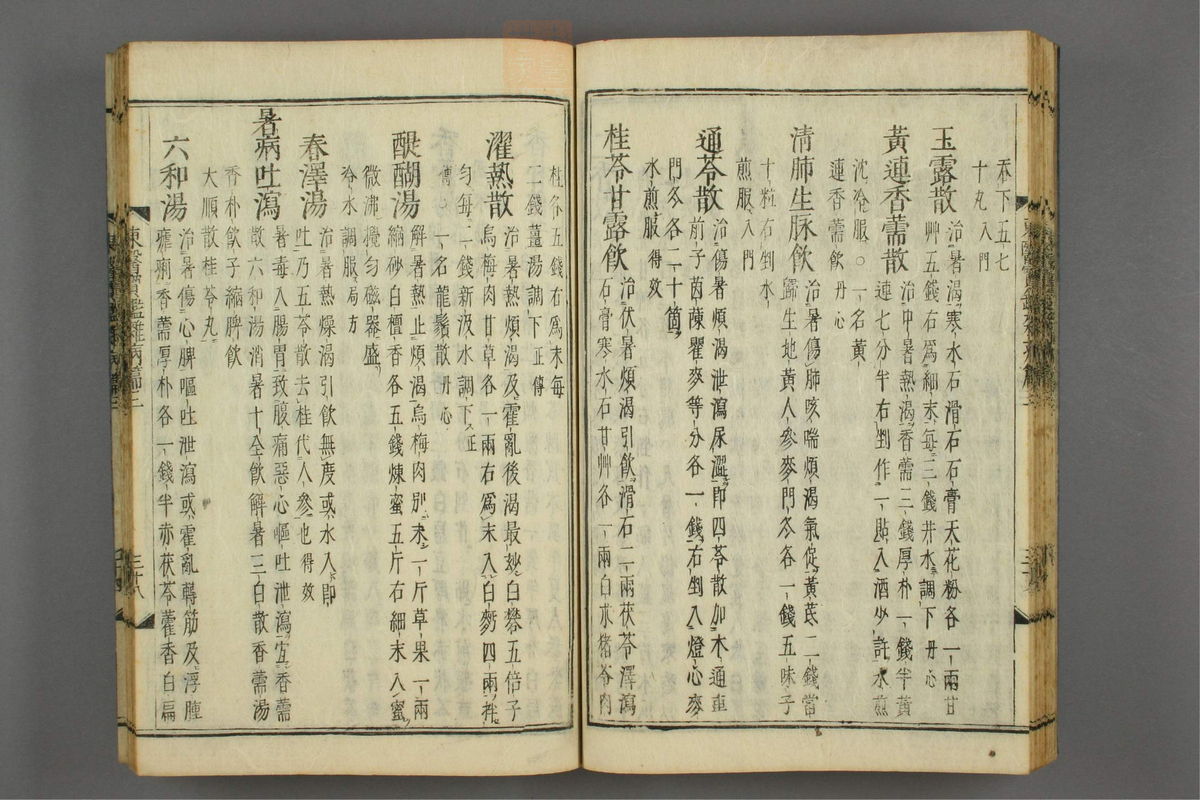 吞下五七
十丸入門
玉露散治暑渴寒水石滑石石膏天花粉各一兩甘
艸五錢右爲細末每三錢井水調下丹心
黃連香薷散治中暑熱渴香薷三錢厚朴一錢半黃
連七分半右剉作一貼入酒少許水煎
沈冷服○一名黃
連香薷飮丹心
淸肺生脉飮治暑傷肺咳喘煩渴氣促黃芪二錢當
歸生地黃人參麥門冬各一錢五味子
十粒右剉水
煎服入門
通苓散治傷暑煩渴泄瀉尿澁卽四苓散加木通車
前子茵蔯瞿麥等分各一錢右剉入燈心麥
門冬各二十箇
水煎服得效
桂苓甘露飮治伏暑煩渴引飮滑石二兩茯苓澤瀉
石膏寒水石甘艸各一兩白朮猪苓肉
桂各五錢右爲末每
二錢薑湯調下正傳
濯熱散治暑熱煩渴及霍亂後渴最妙白礬五倍子
烏梅肉甘草各一兩右爲末入白麪四兩拌
勻每二錢新汲水調下正
傳○一名龍鬚散丹心
醍醐湯解暑熱止煩渴烏梅肉別末一斤草果一兩
縮砂白檀香各五錢煉蜜五斤右細末入蜜
微沸攪勻磁器盛
冷水調服局方
春澤湯治暑熱燥渴引飮無度或水入卽
吐乃五苓散去桂代人參也得效
暑病吐瀉暑毒入腸胃致腹痛惡心嘔吐泄瀉宜香薷
散六和湯消暑十全飮解暑三白散香薷湯
香朴飮子縮脾飮
大順散桂苓丸
六和湯治暑傷心脾嘔吐泄瀉或霍亂轉筋及浮腫
瘧痢香薷厚朴各一錢半赤茯苓藿香白扁
東醫寶鑑雜病篇三
三十八